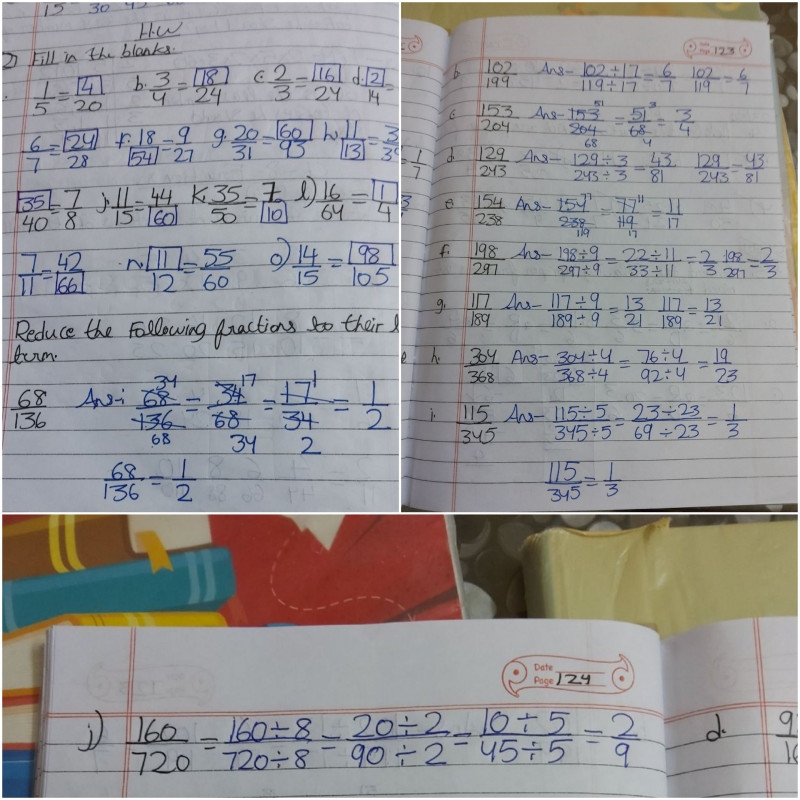 15 30
H.W
2) Fill in the blanks.
1/5 = 4/20 b. 3/4 = 18/24 c. 2/3 = 16/24 d. 2/14 =
6/7 = 24/28 f. 18/54 = 9/27 g. 20/31 = 60/93 h. 11/13 = 3/39
35/40 = 7/8 j. 11/15 = 44/60 K. 35/50 = 7/10 l) 16/64 = 1/4
7/11 = 42/66 n. 11/12 = 55/60 o) 14/15 = 98/105
Reduce the following fractions to their l
term.
68/136 Ans-: 68/136 34 68 = 34/68 17 34 = 17/34 1 2 = 1/2
68/136 = 1/2
Date
Page 123
b 102/199 Ans- 102÷17/119÷17 = 6/7 102/119 = 6/7
c 153/204 Ans- 153/204 51 68 = 51/68 3 4 = 3/4
d 129/243 Ans- 129÷3/243÷3 = 43/81 129/243 = 43/81
e 154/238 Ans- 154/238 77 119 = 77/119 11 17 = 11/17
f. 198/297 Ans- 198÷9/297÷9 = 22÷11/33÷11 = 2/3 198/297 = 2/3
g. 117/189 Ans- 117÷9/189÷9 = 13/21 117/189 = 13/21
h. 304/368 Ans- 304÷4/368÷4 = 76÷4/92÷4 = 19/23
i. 115/345 Ans- 115÷5/345÷5 = 23÷23/69÷23 = 1/3
115/345 = 1/3
Date
Page 124
j) 160/720 = 160÷8/720÷8 = 20÷2/90÷2 = 10÷5/45÷5 = 2/9 d.